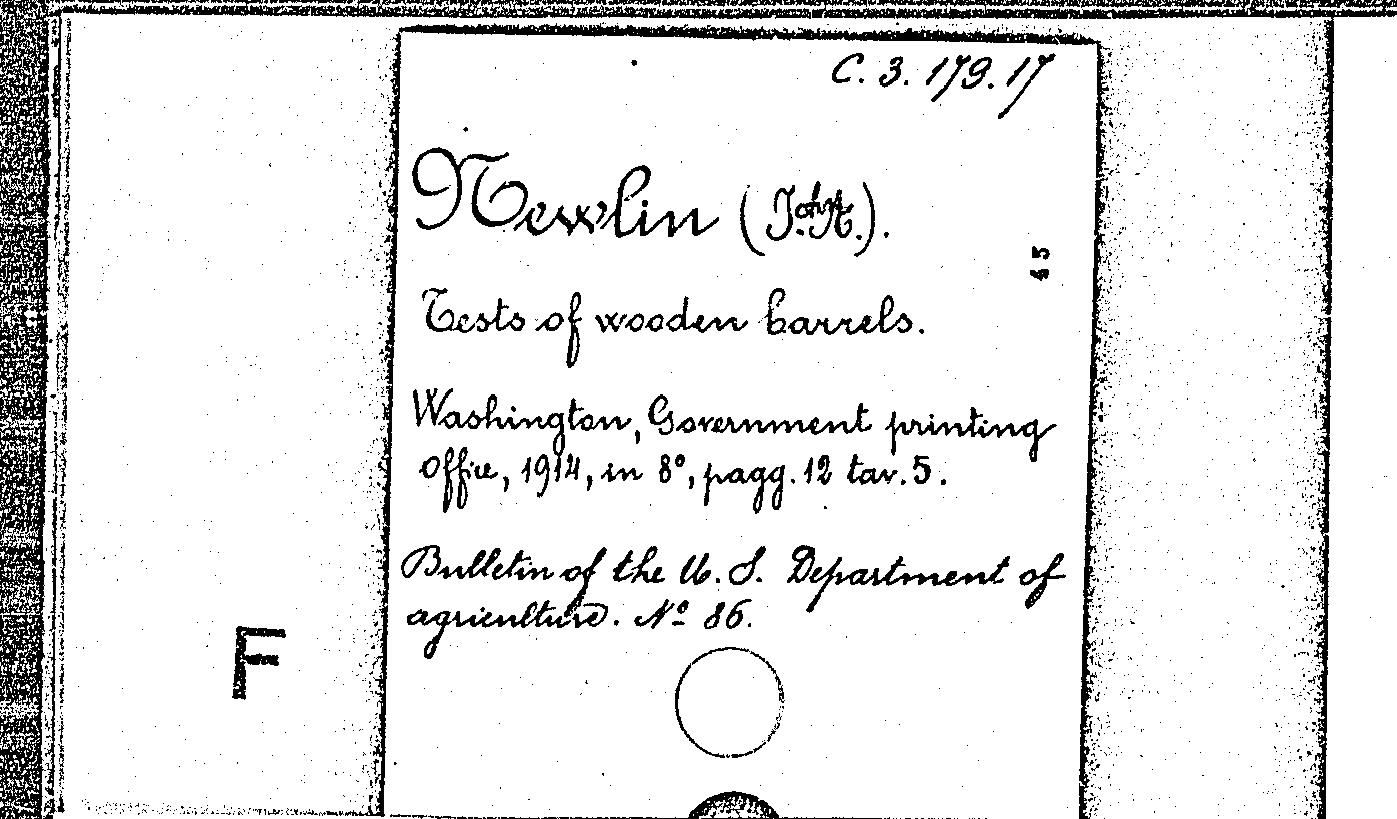 C. 3. 179. 17
Newlin (J. A.).
65
Tests of wooden barrels.
Washington, Government printing
office, 1914, in 8°, pagg. 12 tav. 5.
Bulletin of the U. S. Department of
agriculture. Nº 86.
F